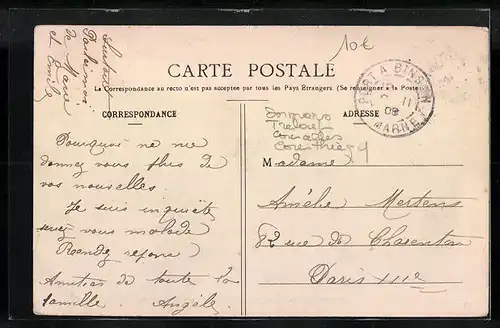 10€
Surtout
de Marie
et Emile
CARTE POSTALE
La Correspondance au recto n'est pas acceptée par tous les Pays Étrangers. (Se renseigner à la Poste)
CORRESPONDANCE
ADRESSE
PORT A BINSON
11
09
MARNE
Dormans
Treloup
Pourquoi ne me
donnez vous plus de
vos nouvelles.
Je suis inquiète
seriez vous malade
Amitiés de toute la
famille. Angèle
Madame
Amélie Mertens
82 rue de Charenton
Paris XIIe